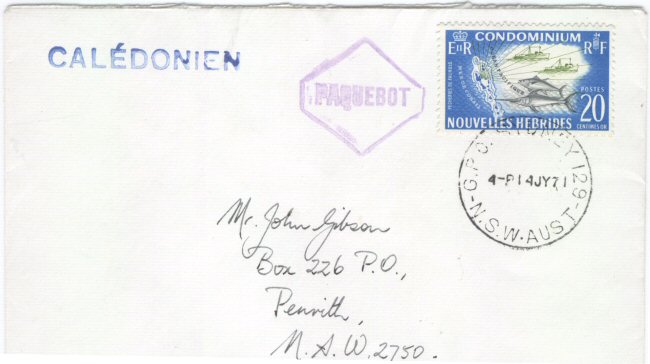 CALÉDONIEN
PAQUEBOT
CONDOMINIUM
EIIR RF
POSTES
20
CENTIMES OR
NOUVELLES HEBRIDES
G.P.O. SYDNEY 129
4-P14JY71
N.S.W.AUST
Mr. John Gibson
Box 226 P.O.,
Penrith,
N.S.W. 2750.